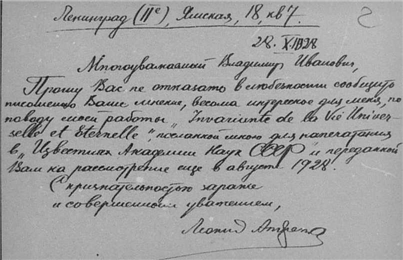 Ленинград (11е), Ямская, 18, кв 7.
28. X. 1928
Многоуважаемый Владимир Иванович,
Прошу Вас не отказать в любезности сообщить
письменно Ваше мнение, весьма интересное для меня, по
поводу моей работы „Invariante de la Vie Univer-
selle et Eternelle", посланной мною для напечатания
в „Известиях Академии Наук СССР" и переданной
Вам на рассмотрение еще в августе 1928.
С признательностью заранее
и совершенным уважением,
Леонид